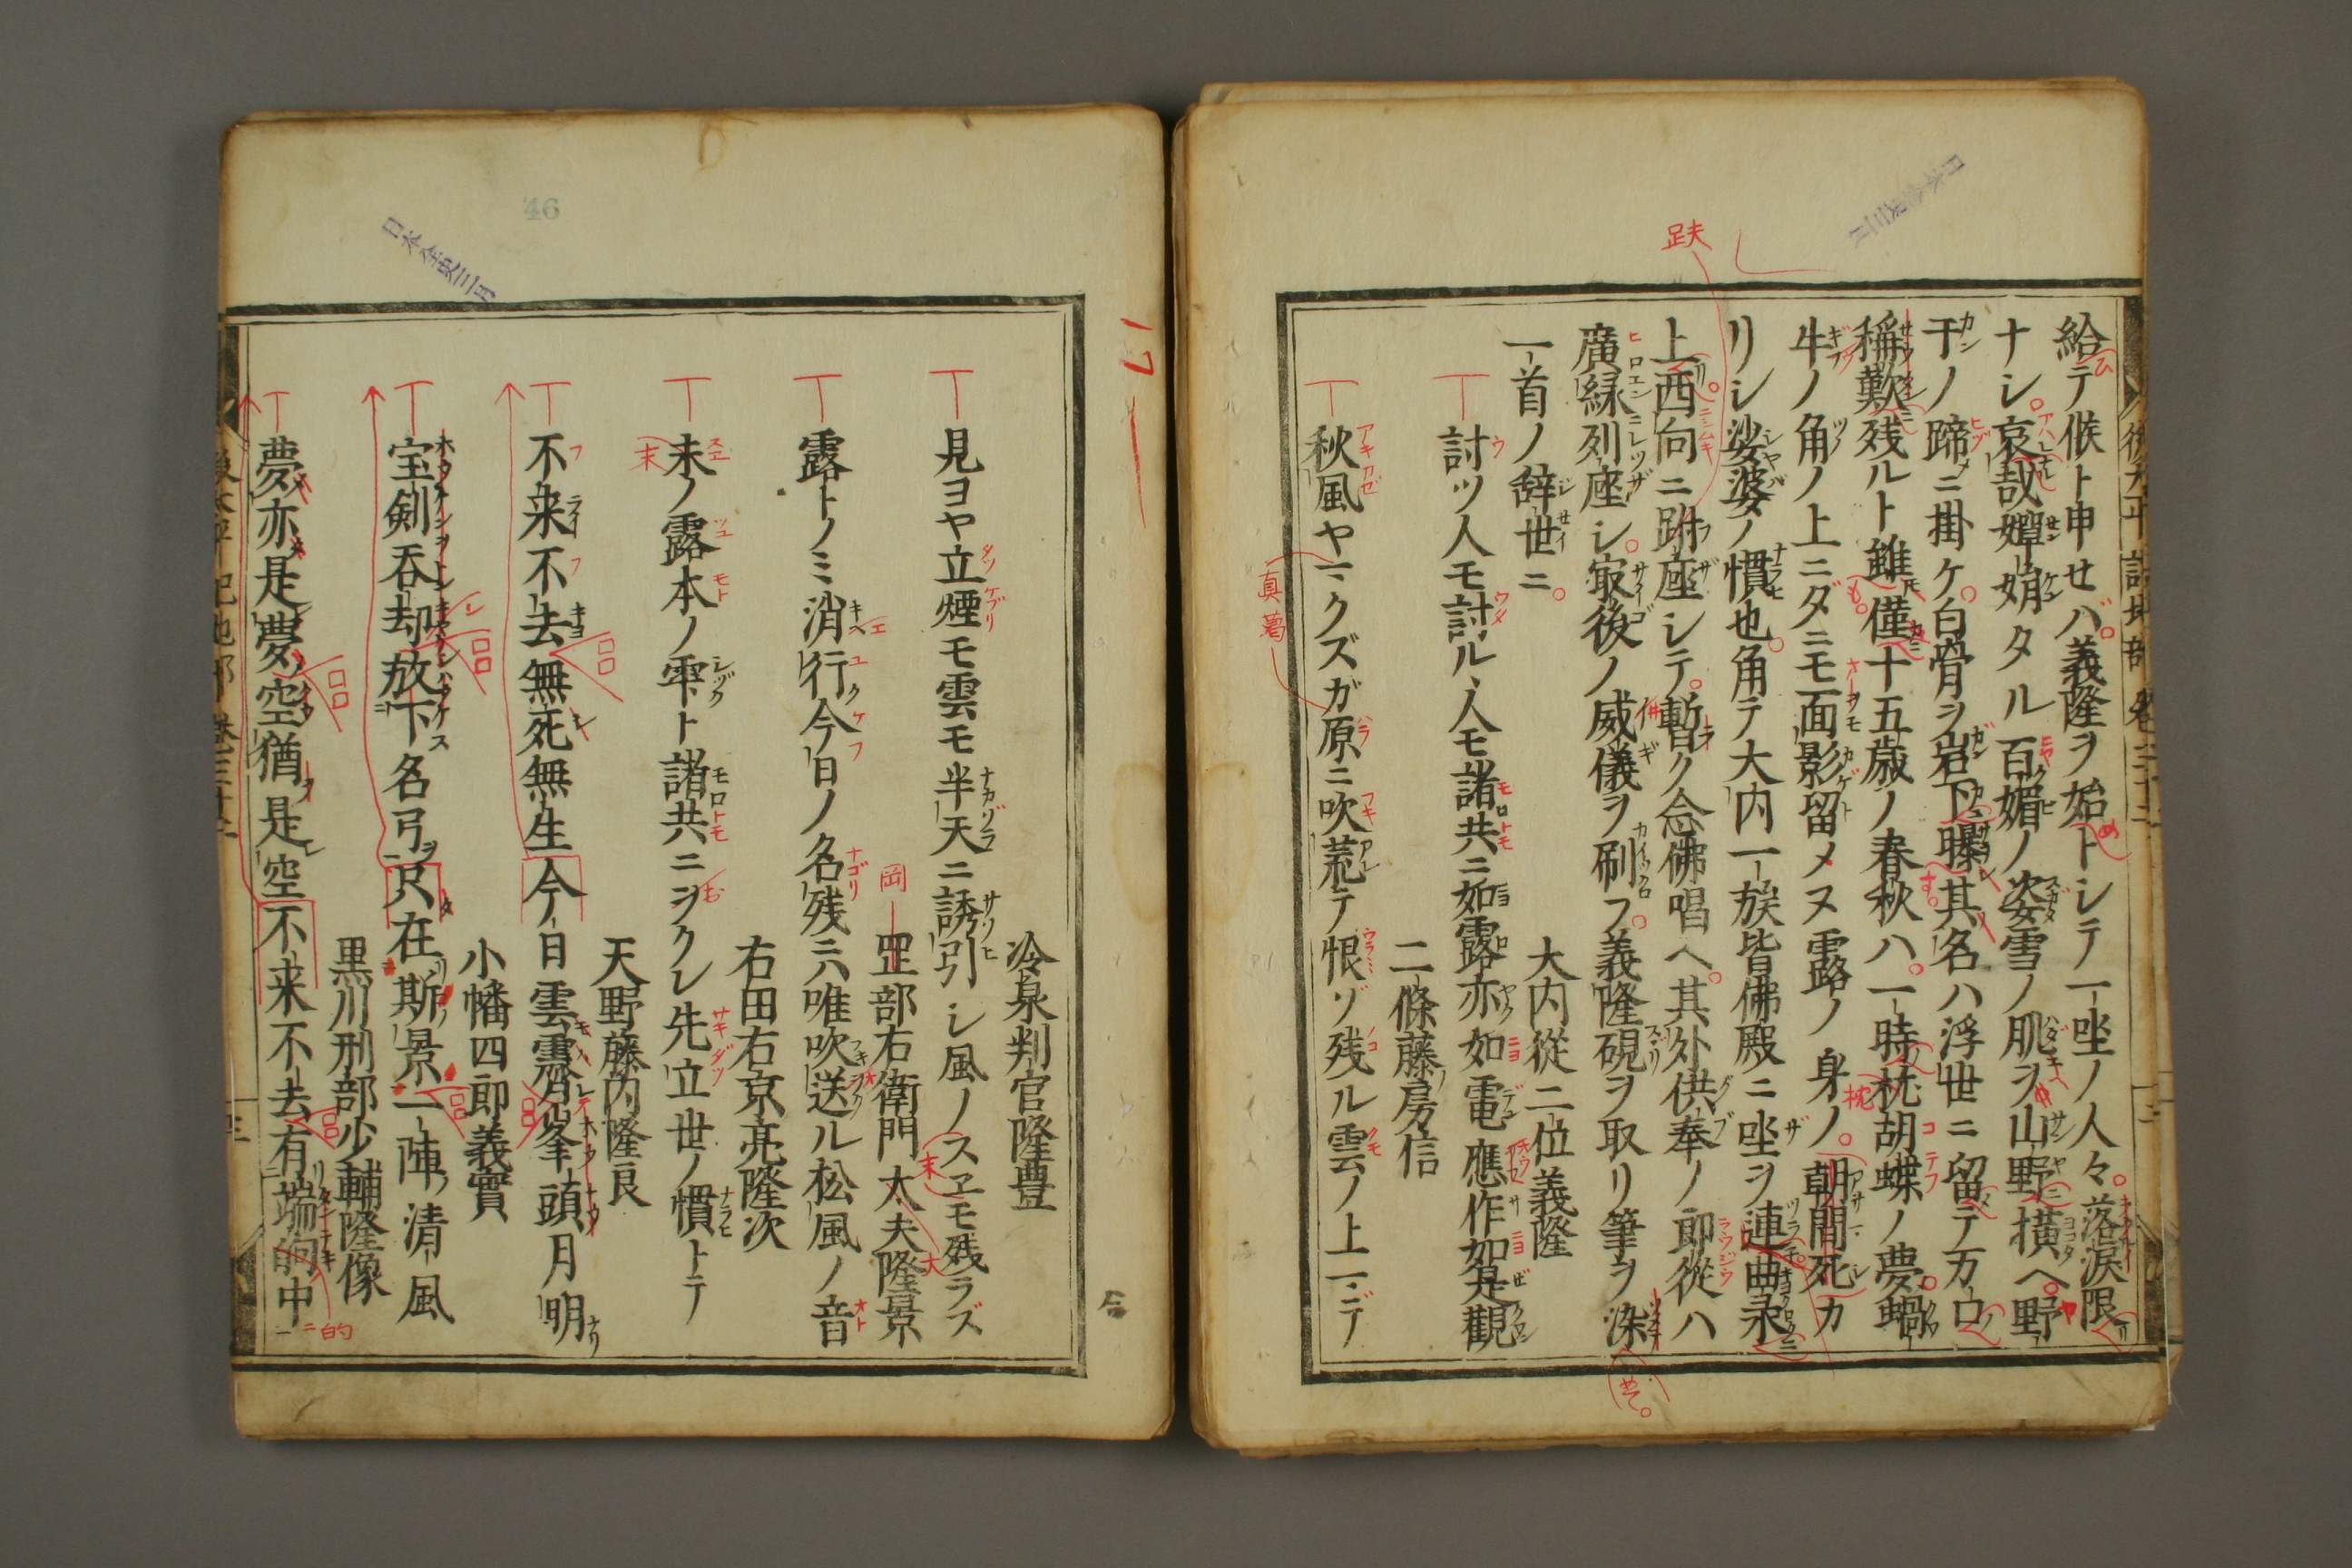 給テ候ト申セバ。義隆ヲ始トシテ一坐ノ人々。落涙限
ナシ。哀哉嬋娟タル百媚ノ姿雪ノ肌ヲ山野ニ横ヘ。野
干ノ蹄ニ掛ケ。白骨ヲ岩下ニ曝シ其名ハ浮世ニ留テ万口
稱歎残ルト雖モ僅十五歳ノ春秋ハ。一時ノ枕胡蝶ノ夢。蝸
牛ノ角ノ上ニダニモ面影留メヌ露ノ身ノ。朝間死カ
リシ娑婆ノ慣也。角テ大内一族皆佛殿ニ坐ヲ連曲彔
上西向ニ跗座シテ。暫ク念佛唱ヘ。其外供奉ノ郎從ハ
廣縁ニ列座シ。寂後ノ威儀ヲ刷フ。義隆硯ヲ取リ筆ヲ染
一首ノ辞世ニ。
大内從二位義隆
討ツ人モ討ル丶人モ諸共ニ如露亦如電應作如是觀
二條藤房信
秋風ヤマクズガ原ニ吹荒テ恨ゾ残ル雲ノ上マデ
後太平記地部 卷三十二
冷泉判官隆豊
見ヨヤ立煙モ雲モ半天ニ誘引シ風ノスヱモ残ラズ
岡部右衛門大夫隆景
露トノミ消行今日ノ名残ニハ唯吹送ル松風ノ音
右田右京亮隆次
末ノ露本ノ雫ト諸共ニヲクレ先立世ノ慣トテ
天野藤内隆良
不来不去無死無生今日雲霽峯頭月明
小幡四郎義實
宝剣呑却放下名弓只在斯景一陣清風
黒川刑部少輔隆像
夢亦是夢空猶是空不来不去有端的中
46
17